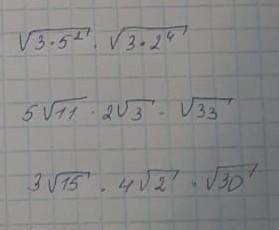 √(3·5²) · √(3·2⁴)
5√11 · 2√3 · √33
3√15 · 4√2 · √30